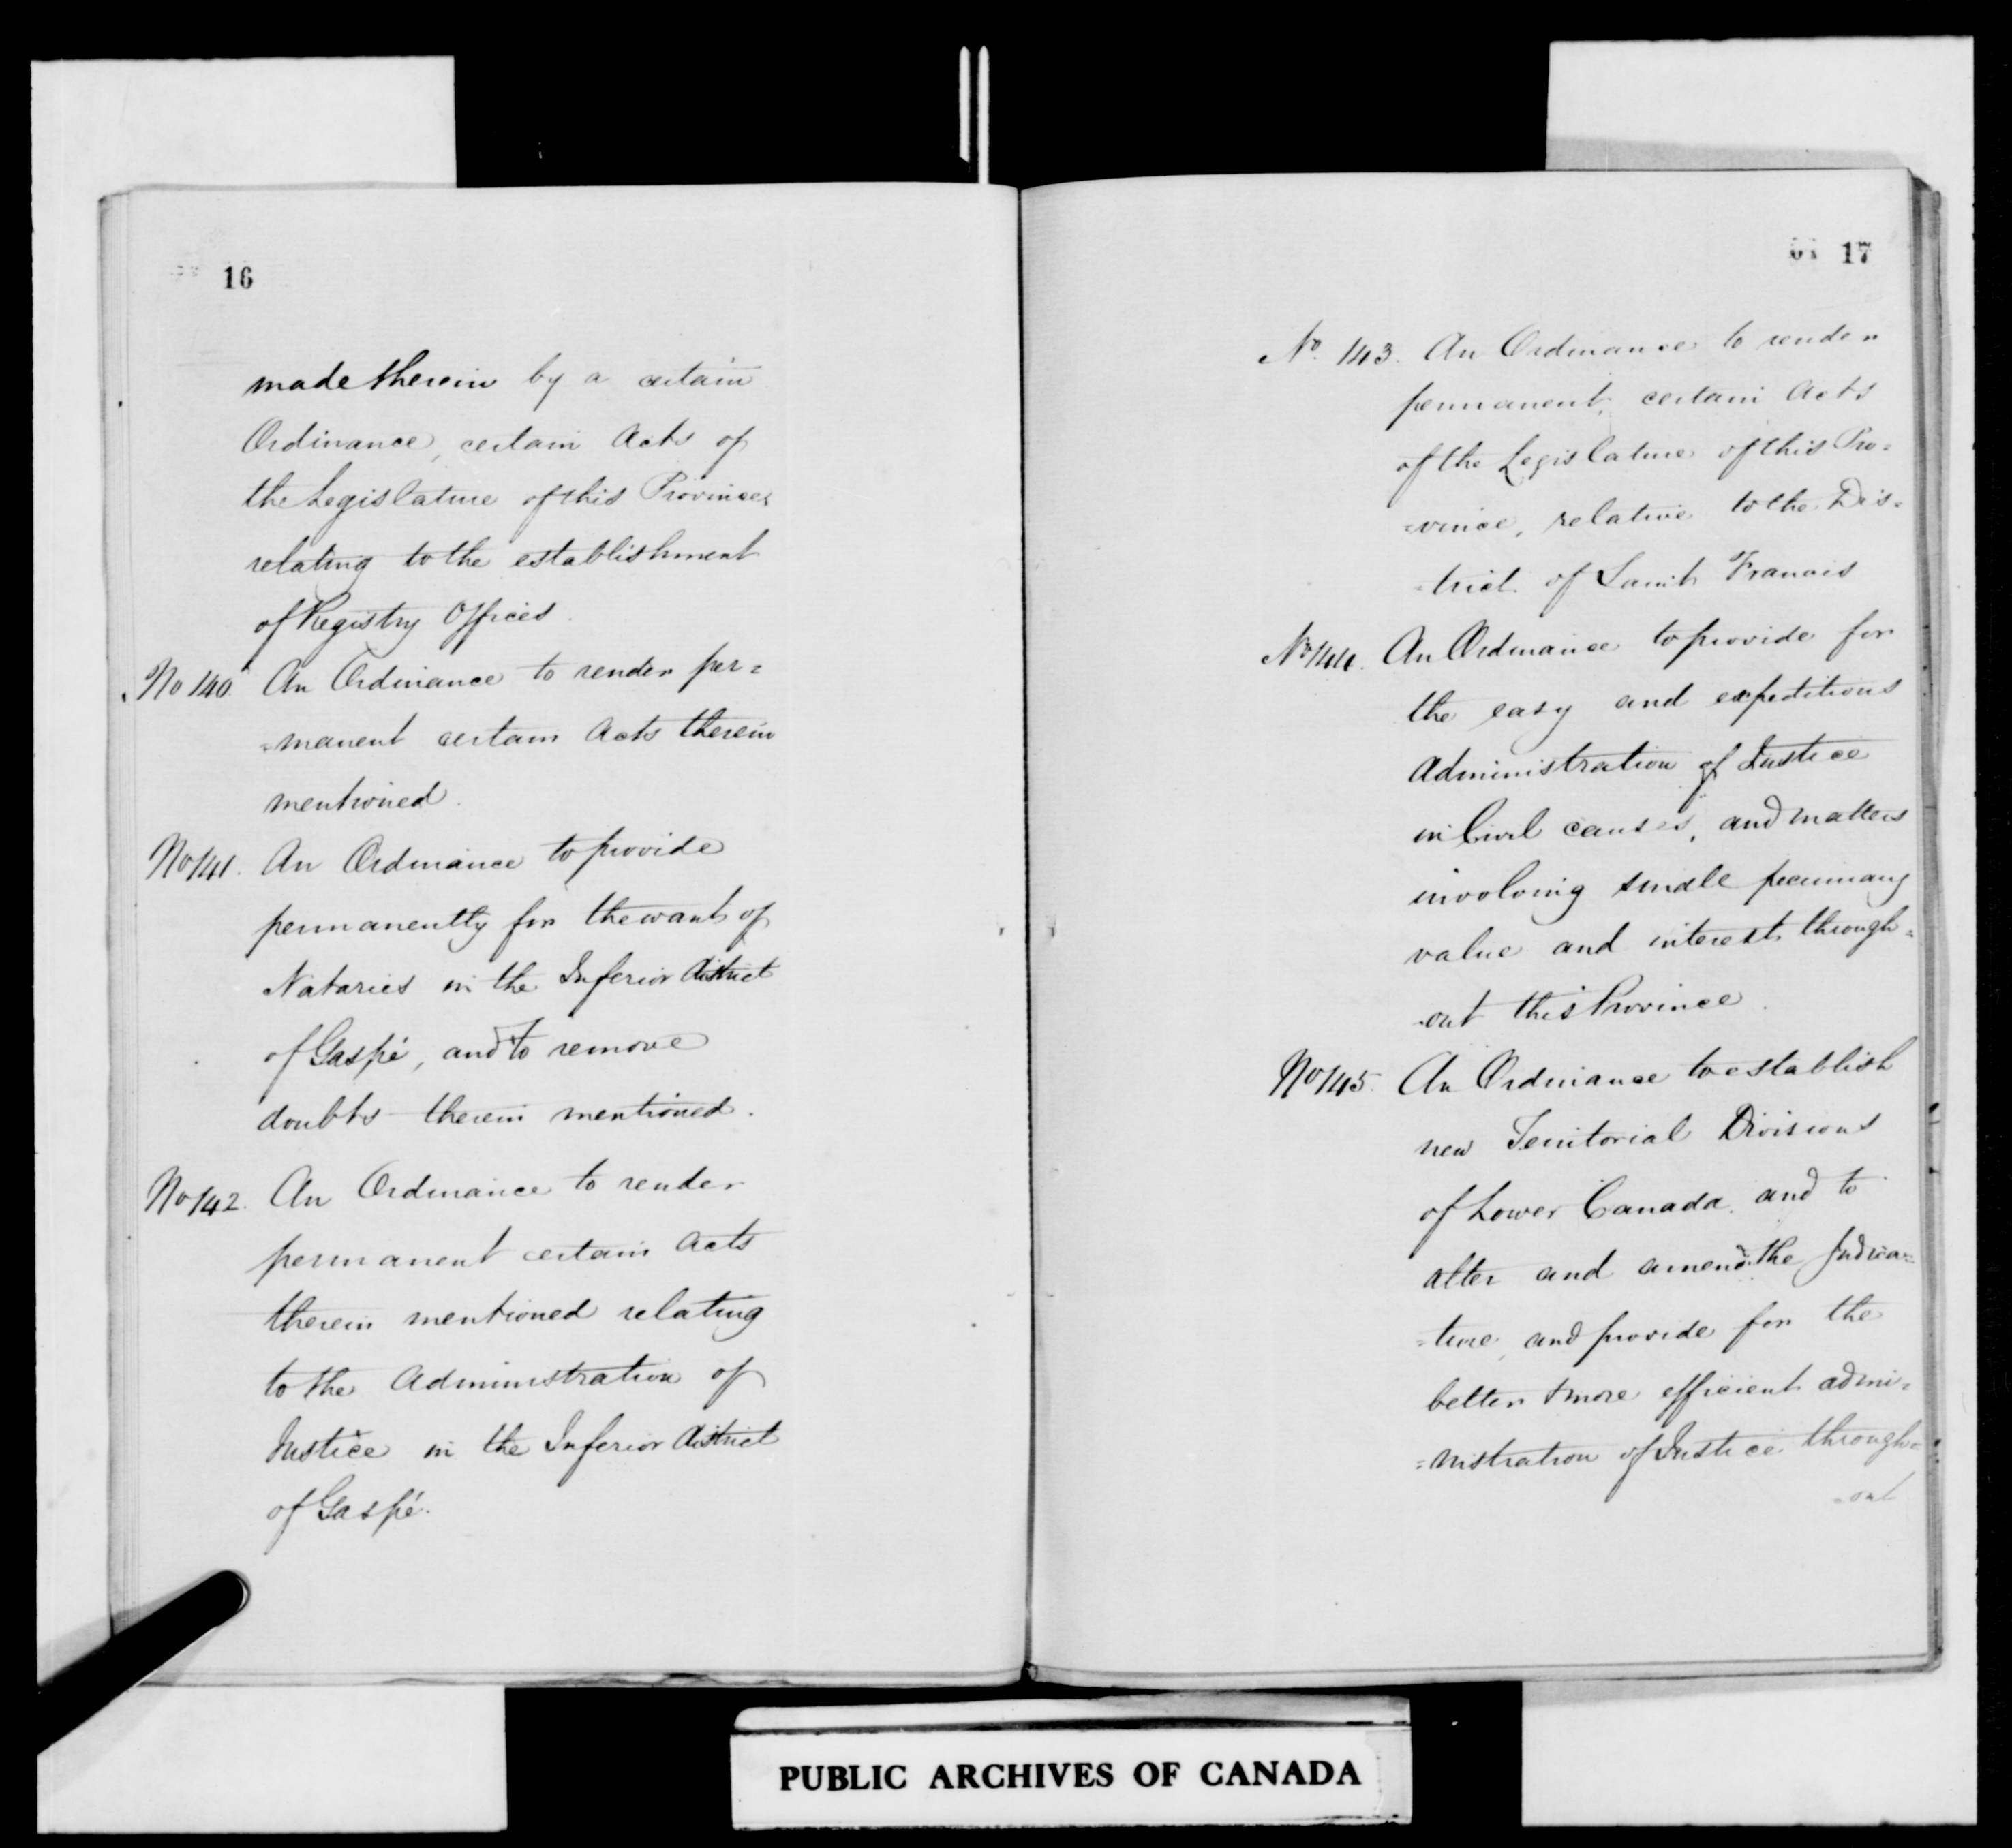 16
made therein by a certain
Ordinance, certain Acts of
the Legislature of this Province,
relating to the establishment
of Registry Offices.
No 140. An Ordinance to render per=
=manent certain Acts therein
mentioned.
No 141. An Ordinance to provide
permanently for the want of
Notaries in the Inferior district
of Gaspé, and to remove
doubts therein mentioned.
No 142. An Ordinance to render
permanent certain Acts
therein mentioned relating
to the Administration of
Justice in the Inferior district
of Gaspé.
17
No. 143. An Ordinance to render
permanent, certain Acts
of the Legislature of this Pro=
=vince, relative to the Dis=
=trict of Saint Francis
No 144. An Ordinance to provide for
the easy and expeditious
Administration of Justice
in Civil causes, and matters
involving small pecuniary
value and interest through=
=out this Province.
No 145. An Ordinance to establish
new Territorial Divisions
of Lower Canada, and to
alter and amend the Judica=
=ture, and provide for the
better & more efficient admi=
=nistration of Justice through=
=out
PUBLIC ARCHIVES OF CANADA